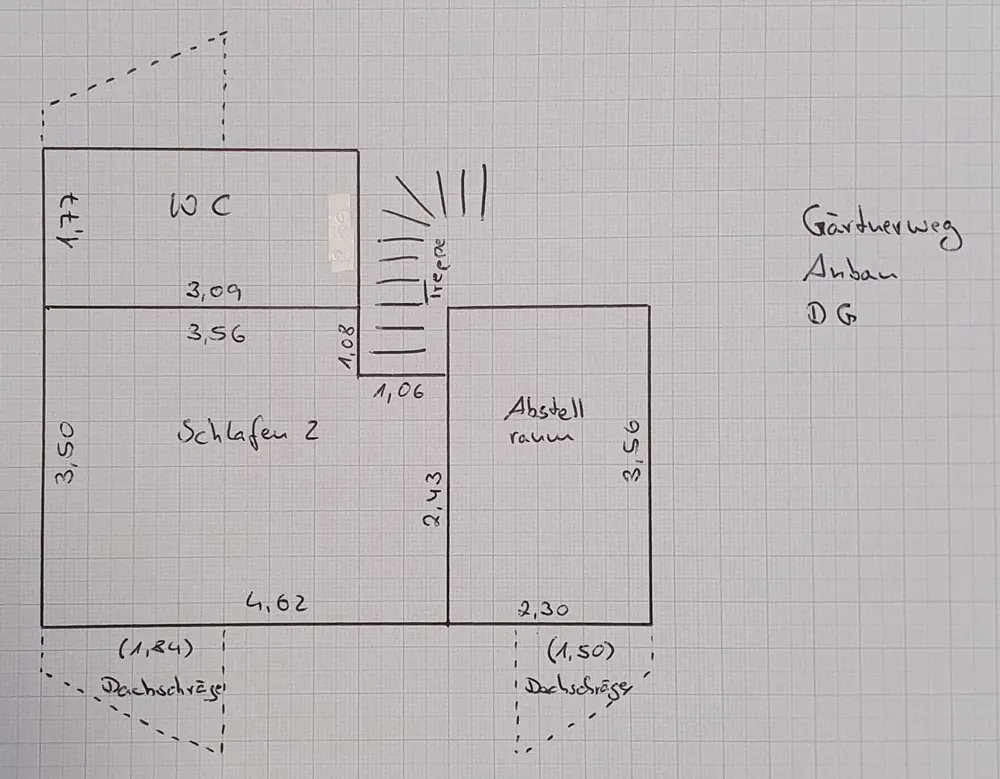 WC
1,77
3,09
Treppe
Gärtnerweg
Anbau
DG
3,56
1,08
1,06
Schlafen 2
3,50
2,43
4,62
Abstell
raum
3,56
2,30
(1,84)
Dachschräge
(1,50)
Dachschräge